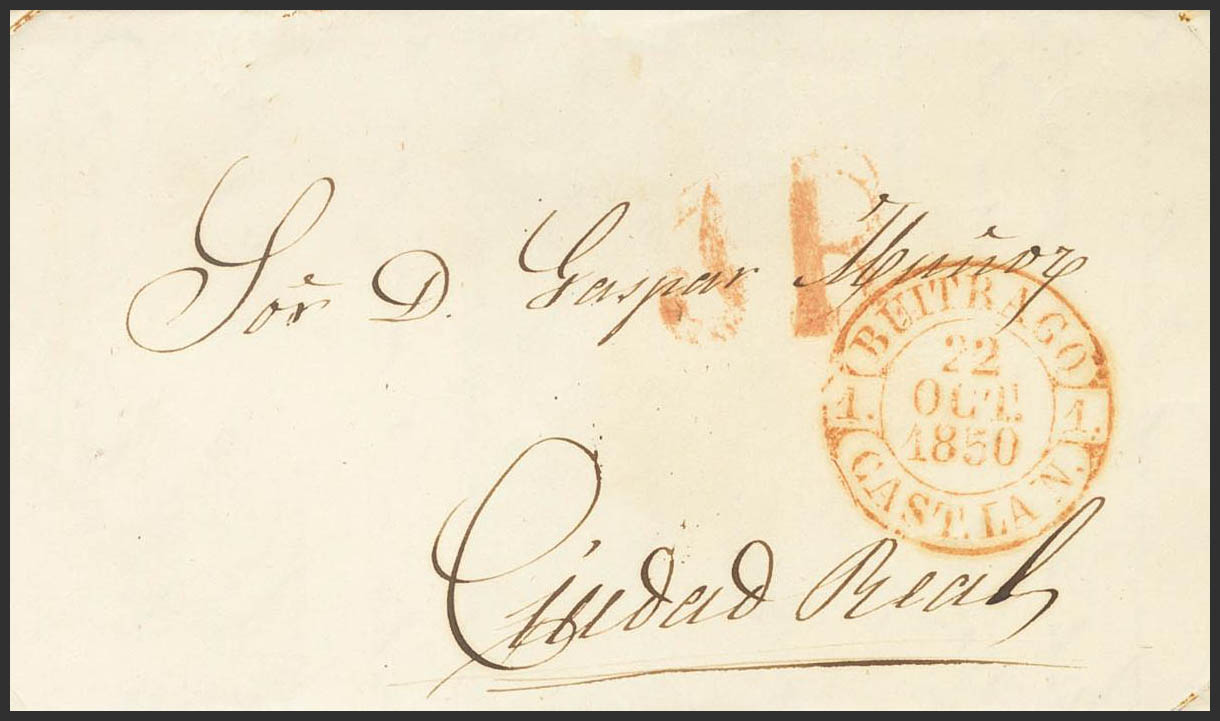 Sor̃ D. Gaspar Muñoz
1R
BUITRAGO
22
OCT.
1850
1. 1.
CAST. LA N.
Ciudad Real